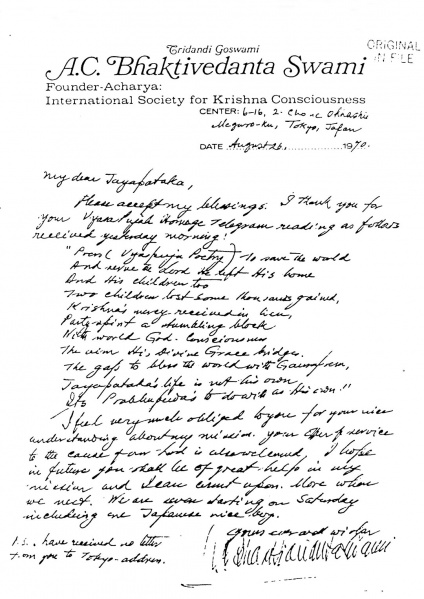 Tridandi Goswami
A.C. Bhaktivedanta Swami
ORIGINAL
IN FILE
Founder-Acharya:
International Society for Krishna Consciousness
CENTER: 6-16, 2- Cho-e Ohhashi
Meguro-Ku, Tokyo, Japan
DATE August 26, 1970.
My dear Jayapataka,
Please accept my blessings. I thank you for
your Vyasa Pujah Homage Telegram reading as follows
received yesterday morning:
"Pran( Vyaspuja Poetry) - To save the world
And serve the Lord He left His home
And His children too
Two children lost some thousands gained,
Krishna's mercy received in lieu,
Party-spirit a stumbling block
With world God-Consciousness
The aim His Divine Grace bridges.
The gaps to bless the world with
Jayapataka's life is not his own
Its Prabhupada's to do with as His own."
I feel very much obliged to you for your nice
understanding about my mission. Your offer of service
to the cause of our Lord is also welcomed, I hope
in future you shall be of great help in my
mission and I can count upon. More when
we meet. We are starting on Saturday
including one Japanese nice boy.
Yours ever well wisher
A.C. Bhaktivedanta Swami
P.S. I have received no letter
from you to Tokyo-address.